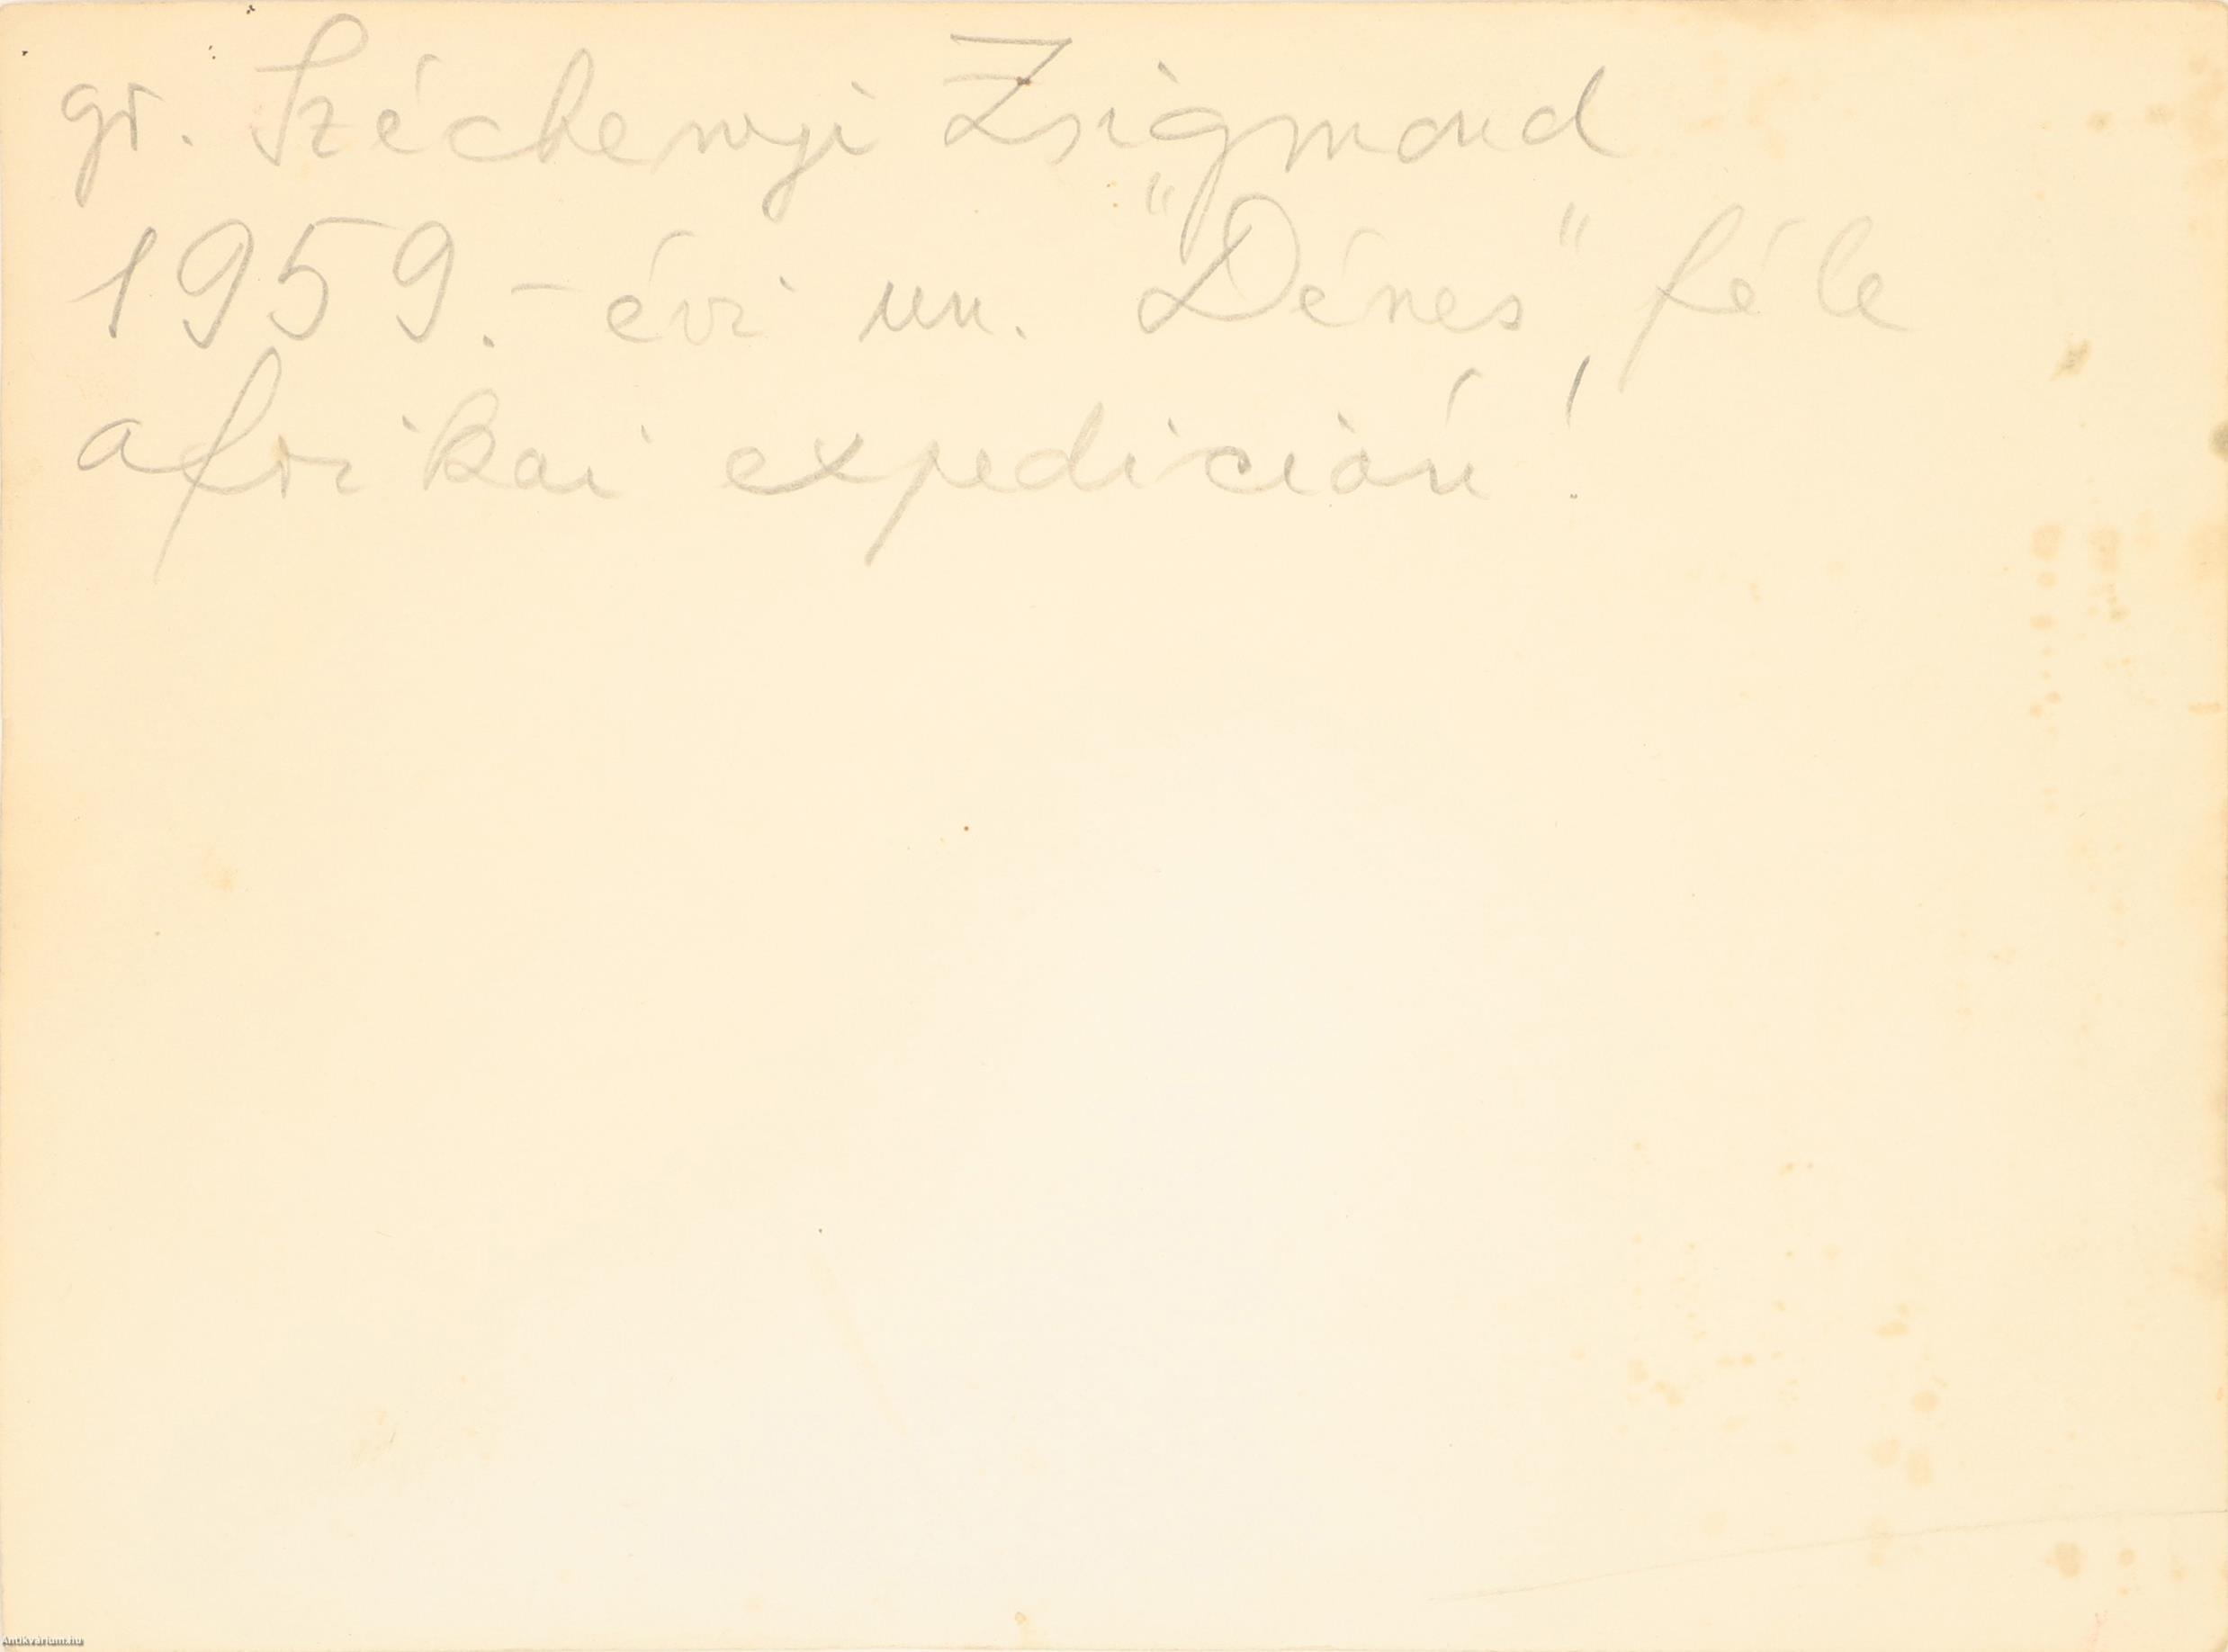 gr. Széchenyi Zsigmond
1959.-évi un. "Dénes" féle
afrikai expedición!
Antikvárium.hu